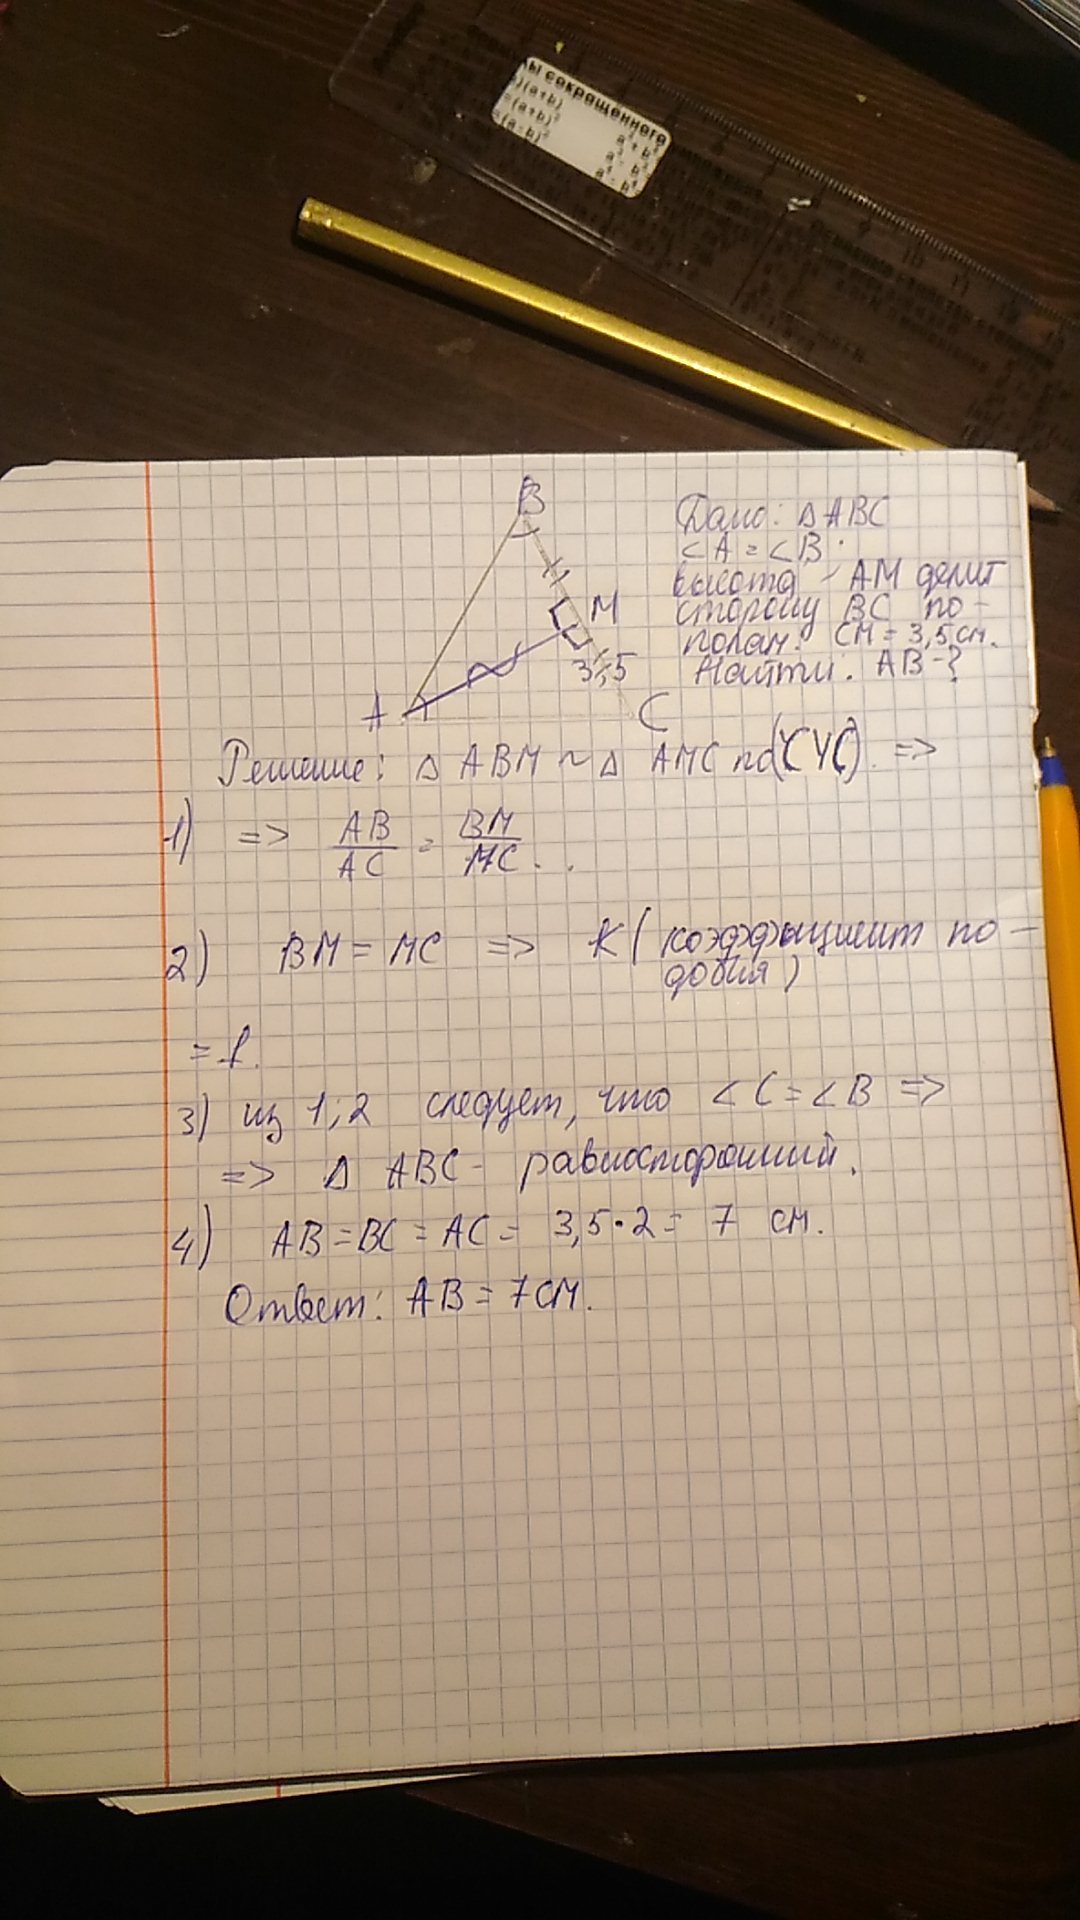 ы сокращённого
)(a+b)
=(a+b)²
=(a-b)²
B
M
3,5
A
C
Дано: △ABC
∠A = ∠B.
высота - AM делит
сторону BC по-
полам. CM = 3,5 см.
Найти: AB - ?
Решение: △ ABM ~ △ AMC по (СУС). =>
1) => AB/AC = BM/MC.
2) BM = MC => K (коэффициент по-
добия)
= 1.
3) из 1;2 следует, что ∠C = ∠B =>
=> △ ABC - равносторонний.
4) AB = BC = AC = 3,5 · 2 = 7 см.
Ответ: AB = 7см.